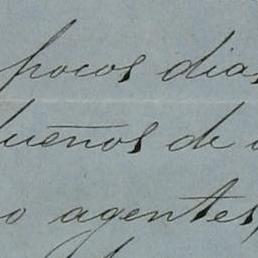 pocos dias
dueños de
o agentes,